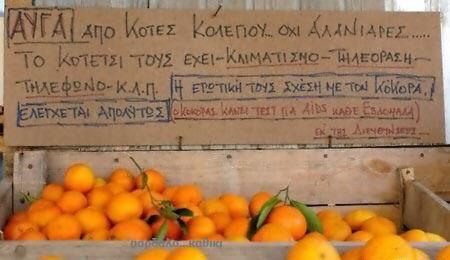 ΑΥΓΑ ΑΠΟ ΚΟΤΕΣ ΚΟΛΕΓΙΟΥ... ΟΧΙ ΑΛΑΝΙΑΡΕΣ......
ΤΟ ΚΟΤΕΤΣΙ ΤΟΥΣ ΕΧΕΙ-ΚΛΙΜΑΤΙΣΜΟ-ΤΗΛΕΟΡΑΣΗ-
ΤΗΛΕΦΩΝΟ-Κ.Λ.Π. Η ΕΡΩΤΙΚΗ ΤΟΥΣ ΣΧΕΣΗ ΜΕ ΤΟΝ ΚΟΚΟΡΑ,
ΕΛΕΓΧΕΤΑΙ ΑΠΟΛΥΤΩΣ (Ο ΚΟΚΟΡΑΣ ΚΑΝΕΙ ΤΕΣΤ ΓΙΑ AIDS ΚΑΘΕ ΕΒΔΟΜΑΔΑ)
ΕΚ ΤΗΣ ΔΙΕΥΘΥΝΣΕΩΣ....